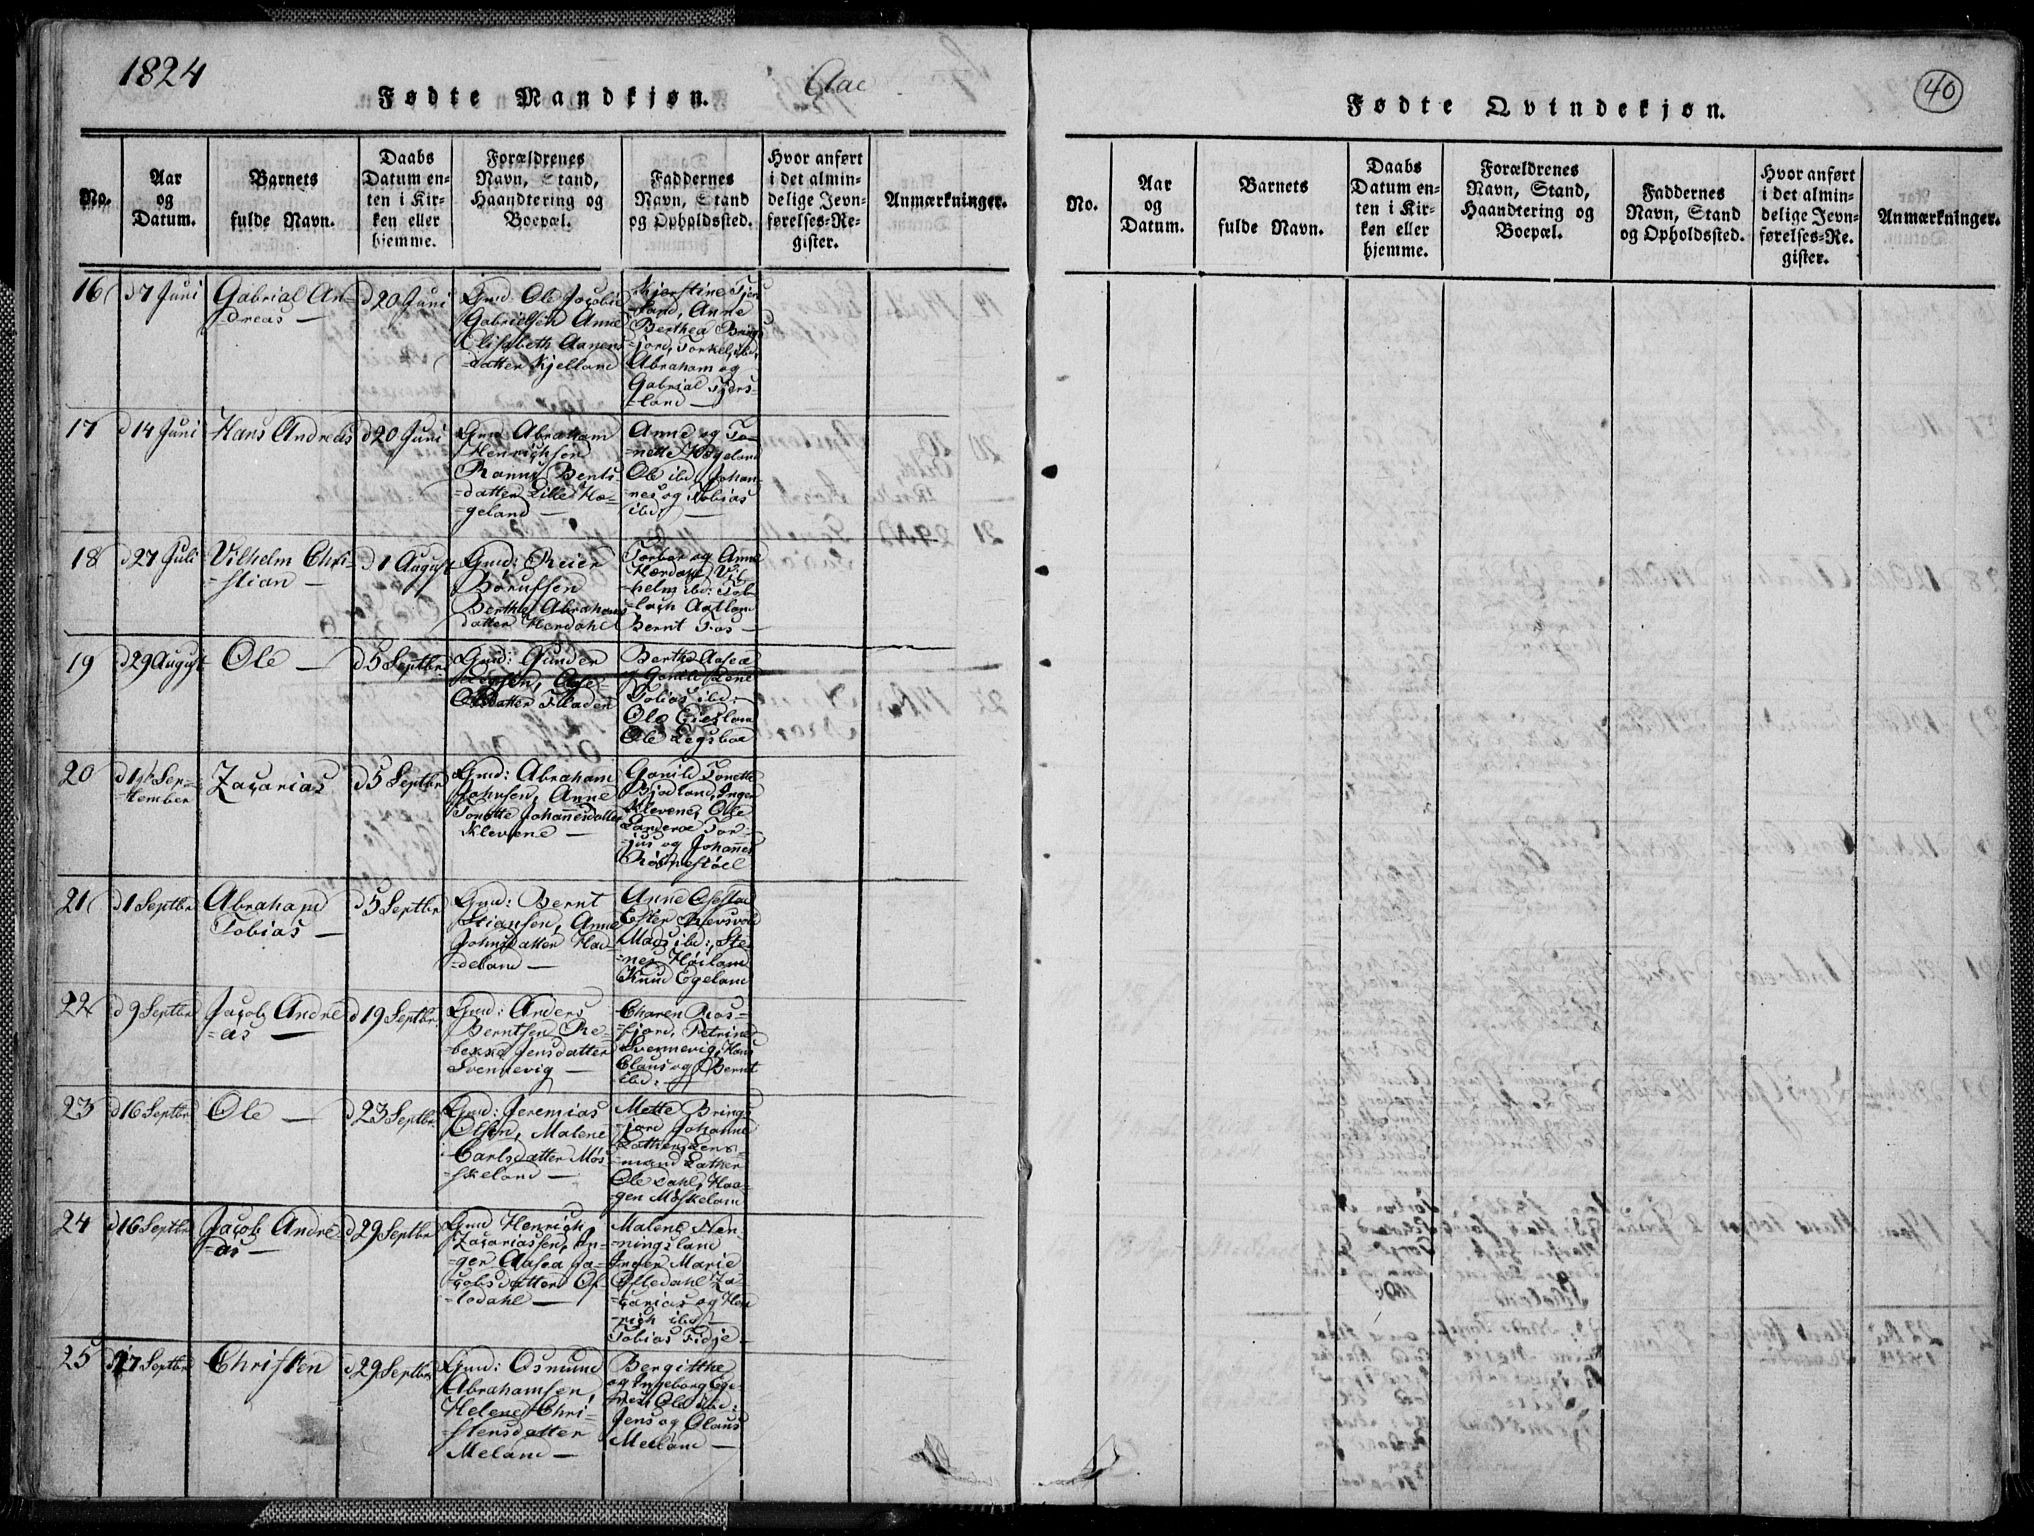 1824
Aae
Fødte Mandkjøn.
No.
Aar
og
Datum.
Barnets
fulde Navn.
Daabs
Datum en-
ten i Kir-
ken eller
hjemme.
Forældrenes
Navn, Stand,
Haandtering og
Boepæl.
Faddernes
Navn, Stand
og Opholdssted.
Hvor anført
i det almin-
delige Jevn-
førelses-Re-
gister.
Anmærkninger.
16
d 7 Juni
Gabrial An-
-dreas
d 20 Juni
Gmd: Ole Jacobi
Gabrielsen Anne
Elisabeth Aanens
datter Kjelland
Kjerstine
-land, Anne
Berthea Brings
-jord, Torkel, ibd,
Abraham og
Gabrial
-land
17
d 14 Juni
Hans Andreas
d 20 Juni
Gmd Abraham
Henrichsen
Ranni Bents-
-datter Lille Hæ-
-geland
Anne og To-
-nette Hægeland
Ole ibd, Johan-
-nes og Tobias
ibd,
18
d 27 Juli
Vilhelm Chri-
-stian
d 1 August
Gmd: Reier
Børufsen
Berthe Abrahams
datter Herdahl
Torbor og Anne
Hærdahl Vil-
helm ibd: Tob-
Bernt Fos
19
d 29 August
Ole
d 5 Septbr
Gmd: Gunder
datter Fladen
Berthe Aasea
Tobias ibd:
Ole Eiesland
Ole Legsboe
20
d 1 Sep-
-tember
Zacarias
d 5 Septbr
Gmd: Abraham
Johnsen, Anne
Tonette Johannesdatter
Klevene
Gonild Tonette
Bjodland, Inger
Klevene, Ole
Landeroe Tor-
-jus og Johannes
Røsnestöel
21
d 1 Septbr
Abraham
Tobias
d 5 Septbr
Gmd: Bernt
Stiansen, Anne
Johnsdatter Had-
-deland
Anne Ofestad
Ester
Mads ibd:, Ste-
-nes Høiland
Knud Egeland
22
d 9 Septbr
Jacob Andre
-as
d 19 Septbr
Gmd: Anders
Berntsen Re-
-bekka Jensdatter
Svennevig
Charen Ros-
-fjord, Petrine
Svennevig, Hans
Claus og Bernt
ibd:
23
d 16 Septbr
Ole
d 23 Septbr
Gmd: Jeremias
Olsen, Malene
Carlsdatter Møs-
-skeland
Mette Brings
-jord Johanne
Ole Dahl, Haa-
-gen Møskeland
24
d 16 Septbr
Jacob Andre
-as
d 29 Septbr
Gmd Henrich
Zacariassen, In-
-ger Aasea Ja-
-cobsdatter Of-
-tedahl
Malene Men-
-ningsland
Inger Marie
Oftedahl Za-
-carias og Hen
-rich ibd
Tobias Fidje
25
d 17 Septbr
Christen
d 29 Septbr
Gmd: Osmund
Abrahamsen
Helene Chri-
-stensdatter
Meland
Bergitthe
og Ingeborg Ege-
Ole ibd:
Jens og Olaus
Meland
40
Fødte Qvindekjøn.
No.
Aar
og
Datum.
Barnets
fulde Navn.
Daabs
Datum en-
ten i Kir-
ken eller
hjemme.
Forældrenes
Navn, Stand,
Haandtering og
Boepæl.
Faddernes
Navn, Stand
og Opholdssted.
Hvor anført
i det almin-
delige Jevn-
førelses-Re-
gister.
Anmærkninger.